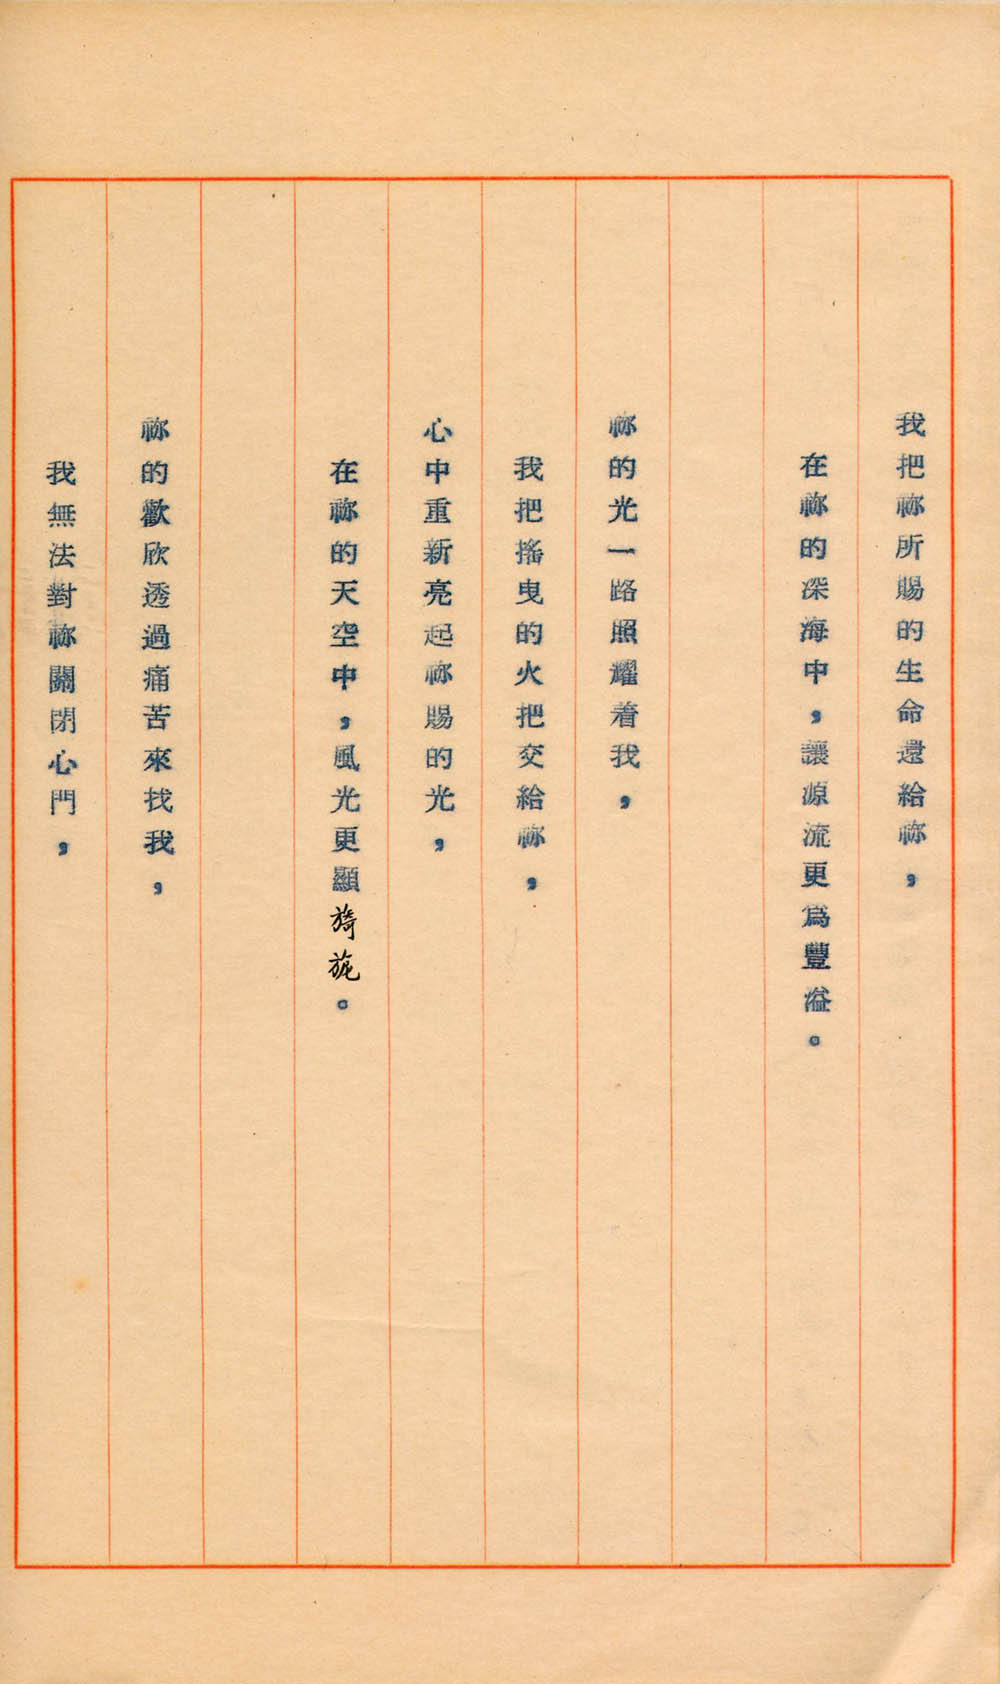 我把祢所賜的生命還給祢，
在祢的深海中，讓源流更為豐溢。
祢的光一路照耀着我，
我把搖曳的火把交給祢，
心中重新亮起祢賜的光，
在祢的天空中，風光更顯旖旎。
祢的歡欣透過痛苦來找我，
我無法對祢關閉心門，